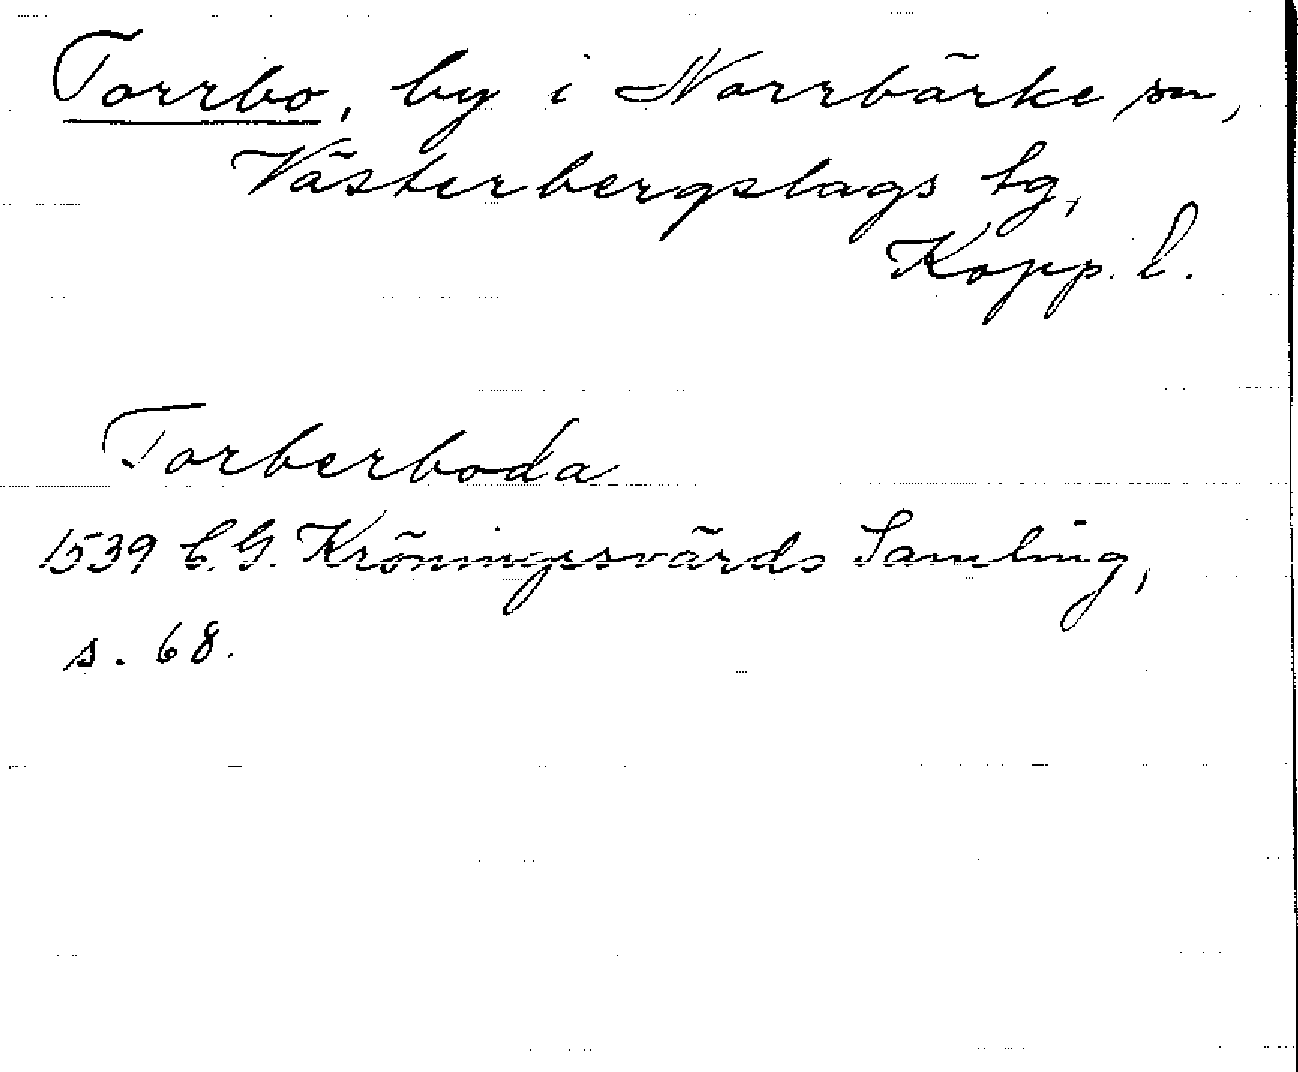 Torrbo, by i Norrbärke sn,
Västerbergslags tg,
Kopp. l.
Torberboda
1539 C. G. Kröningssvärds Samling,
s. 68.